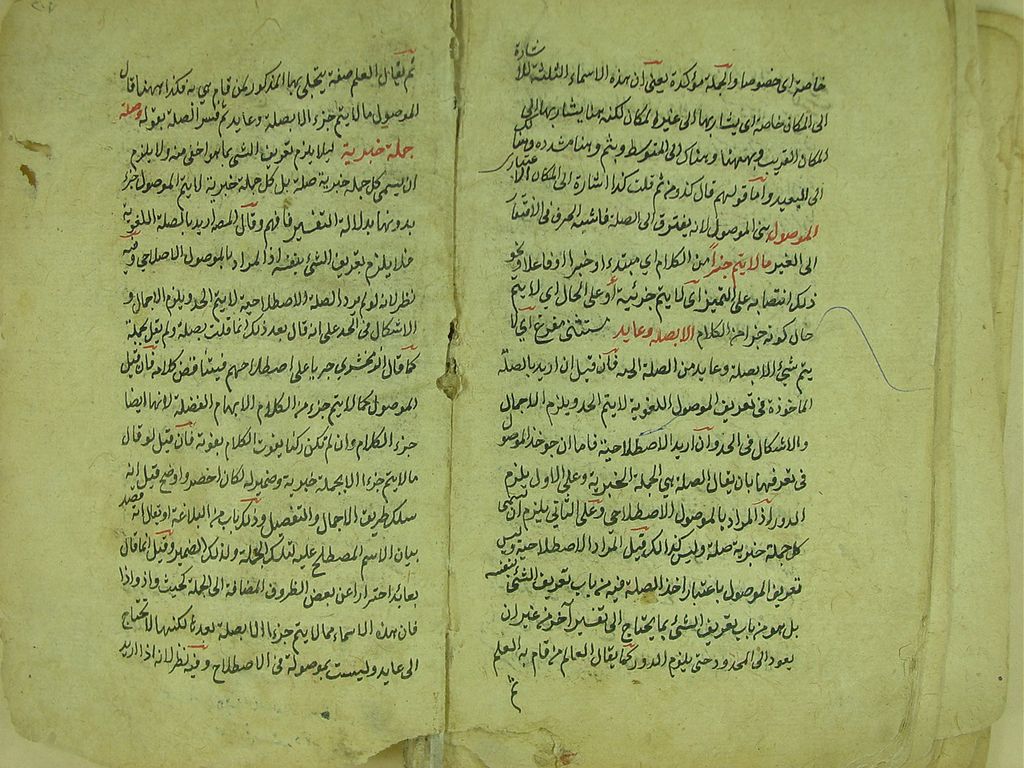 شارة
خاصة اى خصوصا والجملة مؤكدة يعنى ان هذه الاسماء الثلثة للا
الى المكان خاصة اى يشار بها الى غير المكان لكنه هنا يشار بها الى
المكان القريب وههنا وهناك الى المتوسط وثم وهنا مشدده وهنا لك
الى البعيد واما قولهم قال كذا وكذا من ثم قلت كذا اشارة الى المكان الاعتبارى
الموصول بنى الموصول لانه يفتقر الى الصلة فاشبه الحرف فى الافتقار
الى الغير ما لا يتم جزأ من الكلام اى مبتدء او خبرا او فاعلا ونحو
ذلك انتصابه على التميز اى لا يتم جزئيته أو على الحال اى لا يتم
حال كونه جزا من الكلام الا بصلة وعايد مستثنى مفرغ اى لا
يتم شئ الا بصلة وعايد من الصلة اليه فان قيل ان اريد بالصلة
الماخوذة فى تعريف الموصول اللغوية لا يتم الحد ويلزم الاجمال
والاشكال فى الحد وان اريد الاصطلاحية فاما ان يوخذ الموصو
فى تعريفها بان يقال الصلة هى الجملة الخبرية وعلى الاول يلزم
الدور اذ المراد بالموصول الاصطلاحى وعلى الثانى يلزم ان يسمى
كل جملة خبرية صلة وليس كذلك قيل المراد الاصطلاحية وليس
تعريف الموصول باعتبار اخذ الصلة فيه من باب تعريف الشئ بنفسه
بل هو من باب تعريف الشئ بما يحتاج الى تفسير آخر من غير ان
يعود الى المحدود حتى يلزم الدور كما يقال العالم من قام به العلم
ثم يقال العلم صفة يتجلى بها المذكور لمن قام هى به فكذا ههنا قال
الموصول ما لا يتم جزء الا بصلة وعايد ثم فسر الصلة بقوله وصلته
جملة خبرية ليلا يلزم تعريف الشئ بما هو اخفى منه ولا يلزم
ان يسمى كل جملة خبرية صلة بل كل جملة خبرية لا يتم الموصول جزء
بدونها بدلالة التفسير فافهم وقال المصـ اريد بالصلة اللغوية
فلا يلزم تعريف الشئ بنفسه اذ المراد بالموصول الاصطلاحى وفيه
نظر لانه لو لم يرد الصلة الاصطلاحية لا يتم الحد ويلزم الاجمال و
الاشكال فى الحد على انه قال بعد ذلك انما قلت بصلة ولم يقل بجملة
كما قال الزمخشرى جريا على اصطلاحهم فيتناقض كلامه فان قيل
الموصول كما لا يتم جزء من الكلام الا بهما لم الفضلة لانها ايضا
جزء الكلام وان لم تكن ركنا يفوت الكلام بفوته فان قيل لو قال
ما لا يتم جزءا الا بجملة خبرية وضمير له لكان اخصر واوضح قيل انه
سلك طريق الاجمال والتفصيل وذلك باب من البلاغة او يقال انه قصد
بيان الاسم المصطلح عليه لتلك الجملة ولذلك الضمير وقيل انما قال
بعايد احترازا عن بعض الظروف المضافة الى الجملة كحيث واذ واذا
فان هذه الاسماء مما لا يتم جزءا الا بصلة بعدها لكنها لا تحتاج
الى عايد وليست بموصولة فى الاصطلاح وفيه نظر لانه اذا اريد